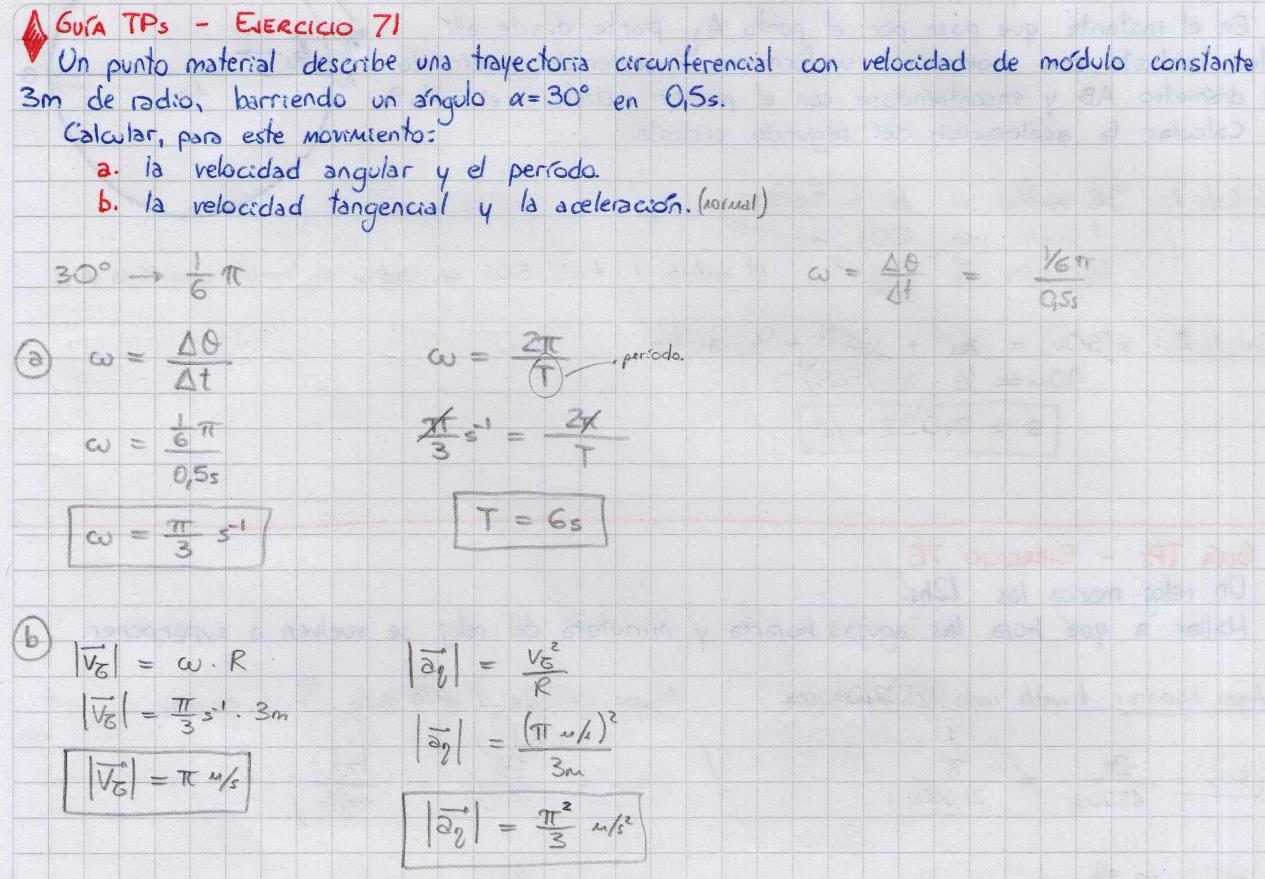 GUÍA TPs - EJERCICIO 71
Un punto material describe una trayectoria circunferencial con velocidad de módulo constante
3m de radio, barriendo un ángulo α=30° en 0,5s.
Calcular, para este movimiento:
a. la velocidad angular y el período.
b. la velocidad tangencial y la aceleración. (normal)
30° → 1/6 π
ω = Δθ/Δt = (1/6 π)/(0,5s)
a
ω = Δθ/Δt
ω = 2π/T período.
ω = (1/6 π)/(0,5s)
π/3 s⁻¹ = 2π/T
ω = π/3 s⁻¹
T = 6s
b
|Vτ| = ω · R
|aη| = Vτ²/R
|Vτ| = π/3 s⁻¹ · 3m
|aη| = (π m/s)²/3m
|Vτ| = π m/s
|aη| = π²/3 m/s²